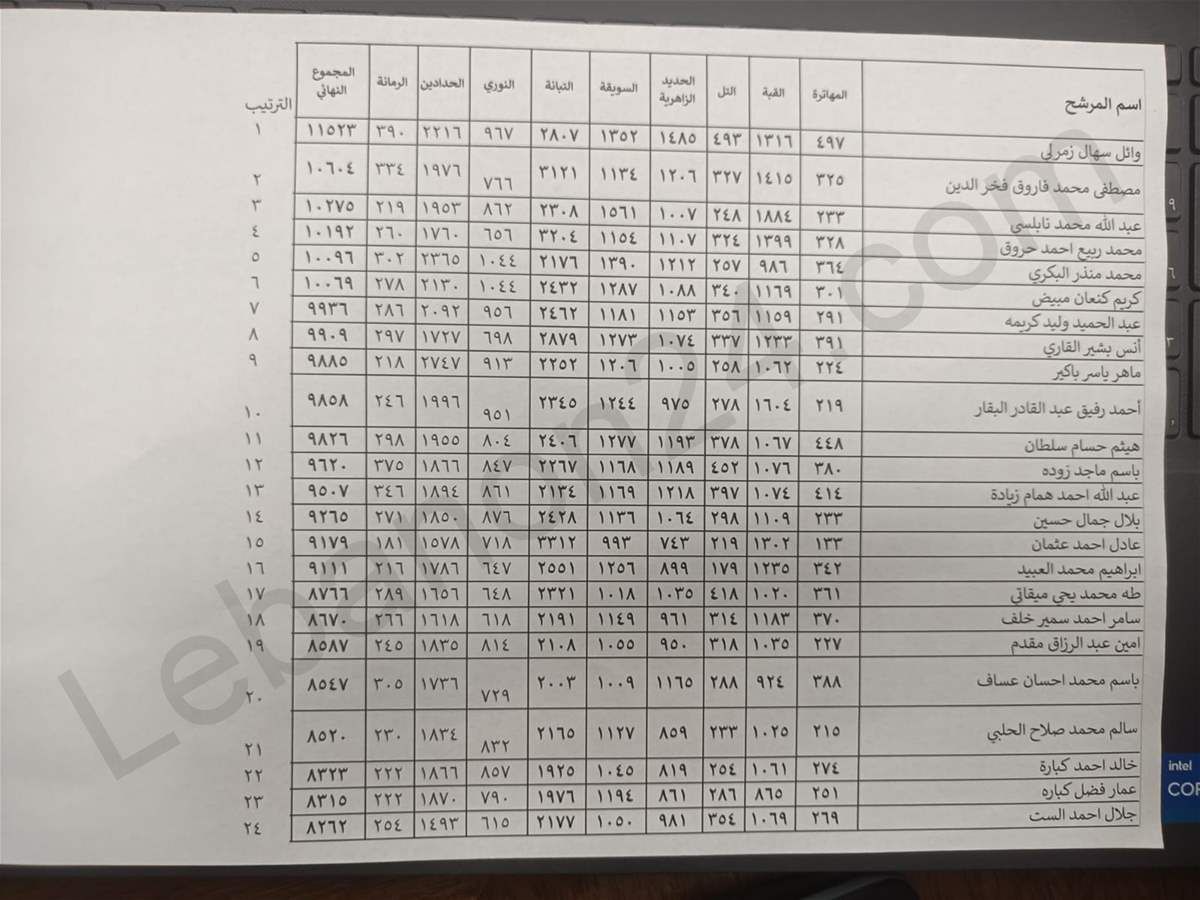 اسم المرشح المهاترة القبة التل الحديد الزاهرية السويقة التبانة النوري الحدادين الرمانة المجموع النهائي الترتيب
وائل سهال زمرلي ٤٩٧ ١٣١٦ ٤٩٣ ١٤٨٥ ١٣٥٢ ٢٨٠٧ ٩٦٧ ٢٢١٦ ٣٩٠ ١١٥٢٣ ١
مصطفى محمد فاروق فخر الدين ٣٢٥ ١٤١٥ ٣٢٧ ١٢٠٦ ١١٣٤ ٣١٢١ ٧٦٦ ١٩٧٦ ٣٣٤ ١٠٦٠٤ ٢
عبد الله محمد نابلسي ٢٣٣ ١٨٨٤ ٢٤٨ ١٠٠٧ ١٥٦١ ٢٣٠٨ ٨٦٢ ١٩٥٣ ٢١٩ ١٠٢٧٥ ٣
محمد ربيع احمد حروق ٣٢٨ ١٣٩٩ ٣٢٤ ١١٠٧ ١١٥٤ ٣٢٠٤ ٦٥٦ ١٧٦٠ ٢٦٠ ١٠١٩٢ ٤
محمد منذر البكري ٣٦٤ ٩٨٦ ٢٥٧ ١٢١٢ ١٣٩٠ ٢١٧٦ ١٠٤٤ ٢٣٦٥ ٣٠٢ ١٠٠٩٦ ٥
كريم كنعان مبيض ٣٠١ ١١٦٩ ٣٤٠ ١٠٨٨ ١٢٨٧ ٢٤٣٢ ١٠٤٤ ٢١٣٠ ٢٧٨ ١٠٠٦٩ ٦
عبد الحميد وليد كريمه ٢٩١ ١١٥٩ ٣٥٦ ١١٥٣ ١١٨١ ٢٤٦٢ ٩٥٦ ٢٠٩٢ ٢٨٦ ٩٩٣٦ ٧
أنس بشير القاري ٣٩١ ١٢٣٣ ٣٣٧ ١٠٧٤ ١٢٧٣ ٢٨٧٩ ٦٩٨ ١٧٢٧ ٢٩٧ ٩٩٠٩ ٨
ماهر ياسر باكير ٢٢٤ ١٠٦٢ ٢٥٨ ١٠٠٥ ١٢٠٦ ٢٢٥٢ ٩١٣ ٢٧٤٧ ٢١٨ ٩٨٨٥ ٩
أحمد رفيق عبد القادر البقار ٢١٩ ١٦٠٤ ٢٧٨ ٩٧٥ ١٢٤٤ ٢٣٤٥ ٩٥١ ١٩٩٦ ٢٤٦ ٩٨٥٨ ١٠
هيثم حسام سلطان ٤٤٨ ١٠٦٧ ٣٧٨ ١١٩٣ ١٢٧٧ ٢٤٠٦ ٨٠٤ ١٩٥٥ ٢٩٨ ٩٨٢٦ ١١
باسم ماجد زوده ٣٨٠ ١٠٧٦ ٤٥٢ ١١٨٩ ١١٦٨ ٢٢٦٧ ٨٤٧ ١٨٦٦ ٣٧٥ ٩٦٢٠ ١٢
عبد الله احمد همام زيادة ٤١٤ ١٠٧٤ ٣٩٧ ١٢١٨ ١١٦٩ ٢١٣٤ ٨٦١ ١٨٩٤ ٣٤٦ ٩٥٠٧ ١٣
بلال جمال حسين ٢٣٣ ١١٠٩ ٢٩٨ ١٠٦٤ ١١٣٦ ٢٤٢٨ ٨٧٦ ١٨٥٠ ٢٧١ ٩٢٦٥ ١٤
عادل احمد عثمان ١٣٣ ١٣٠٢ ٢١٩ ٧٤٣ ٩٩٣ ٣٣١٢ ٧١٨ ١٥٧٨ ١٨١ ٩١٧٩ ١٥
ابراهيم محمد العبيد ٣٤٢ ١٢٣٥ ١٧٩ ٨٩٩ ١٢٥٦ ٢٥٥١ ٦٤٧ ١٧٨٦ ٢١٦ ٩١١١ ١٦
طه محمد يحي ميقاتي ٣٦١ ١٠٢٠ ٤١٨ ١٠٣٥ ١٠١٨ ٢٣٢١ ٦٤٨ ١٦٥٦ ٢٨٩ ٨٧٦٦ ١٧
سامر احمد سمير خلف ٣٧٠ ١١٨٣ ٣١٤ ٩٦١ ١١٤٩ ٢١٩١ ٦١٨ ١٦١٨ ٢٦٦ ٨٦٧٠ ١٨
امين عبد الرزاق مقدم ٢٢٧ ١٠٣٥ ٣١٨ ٩٥٠ ١٠٥٥ ٢١٠٨ ٨١٤ ١٨٣٥ ٢٤٥ ٨٥٨٧ ١٩
باسم محمد احسان عساف ٣٨٨ ٩٢٤ ٢٨٨ ١١٦٥ ١٠٠٩ ٢٠٠٣ ٧٢٩ ١٧٣٦ ٣٠٥ ٨٥٤٧ ٢٠
سالم محمد صلاح الحلبي ٢١٥ ١٠٢٥ ٢٣٣ ٨٥٩ ١١٢٧ ٢١٦٥ ٨٣٢ ١٨٣٤ ٢٣٠ ٨٥٢٠ ٢١
خالد احمد كبارة ٢٧٤ ١٠٦١ ٢٥٤ ٨١٩ ١٠٤٥ ١٩٢٥ ٨٥٧ ١٨٦٦ ٢٢٢ ٨٣٢٣ ٢٢
عمار فضل كباره ٢٥١ ٨٦٥ ٢٨٦ ٨٦١ ١١٩٤ ١٩٧٦ ٧٩٠ ١٨٧٠ ٢٢٢ ٨٣١٥ ٢٣
جلال احمد الست ٢٦٩ ١٠٦٩ ٣٥٤ ٩٨١ ١٠٥٠ ٢١٧٧ ٦١٥ ١٤٩٣ ٢٥٤ ٨٢٦٢ ٢٤
Lebanon24.com
intel